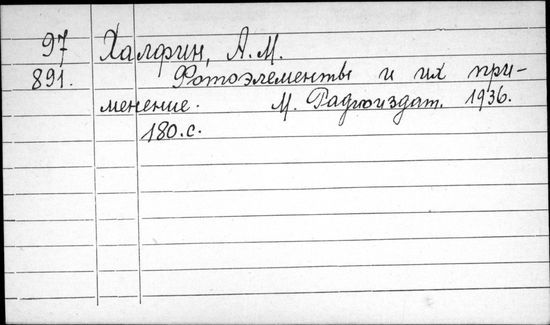 97 Халфин, А.М.
891. Фотоэлементы и их при-
менение. М. Радиоиздат. 1936.
180.с.